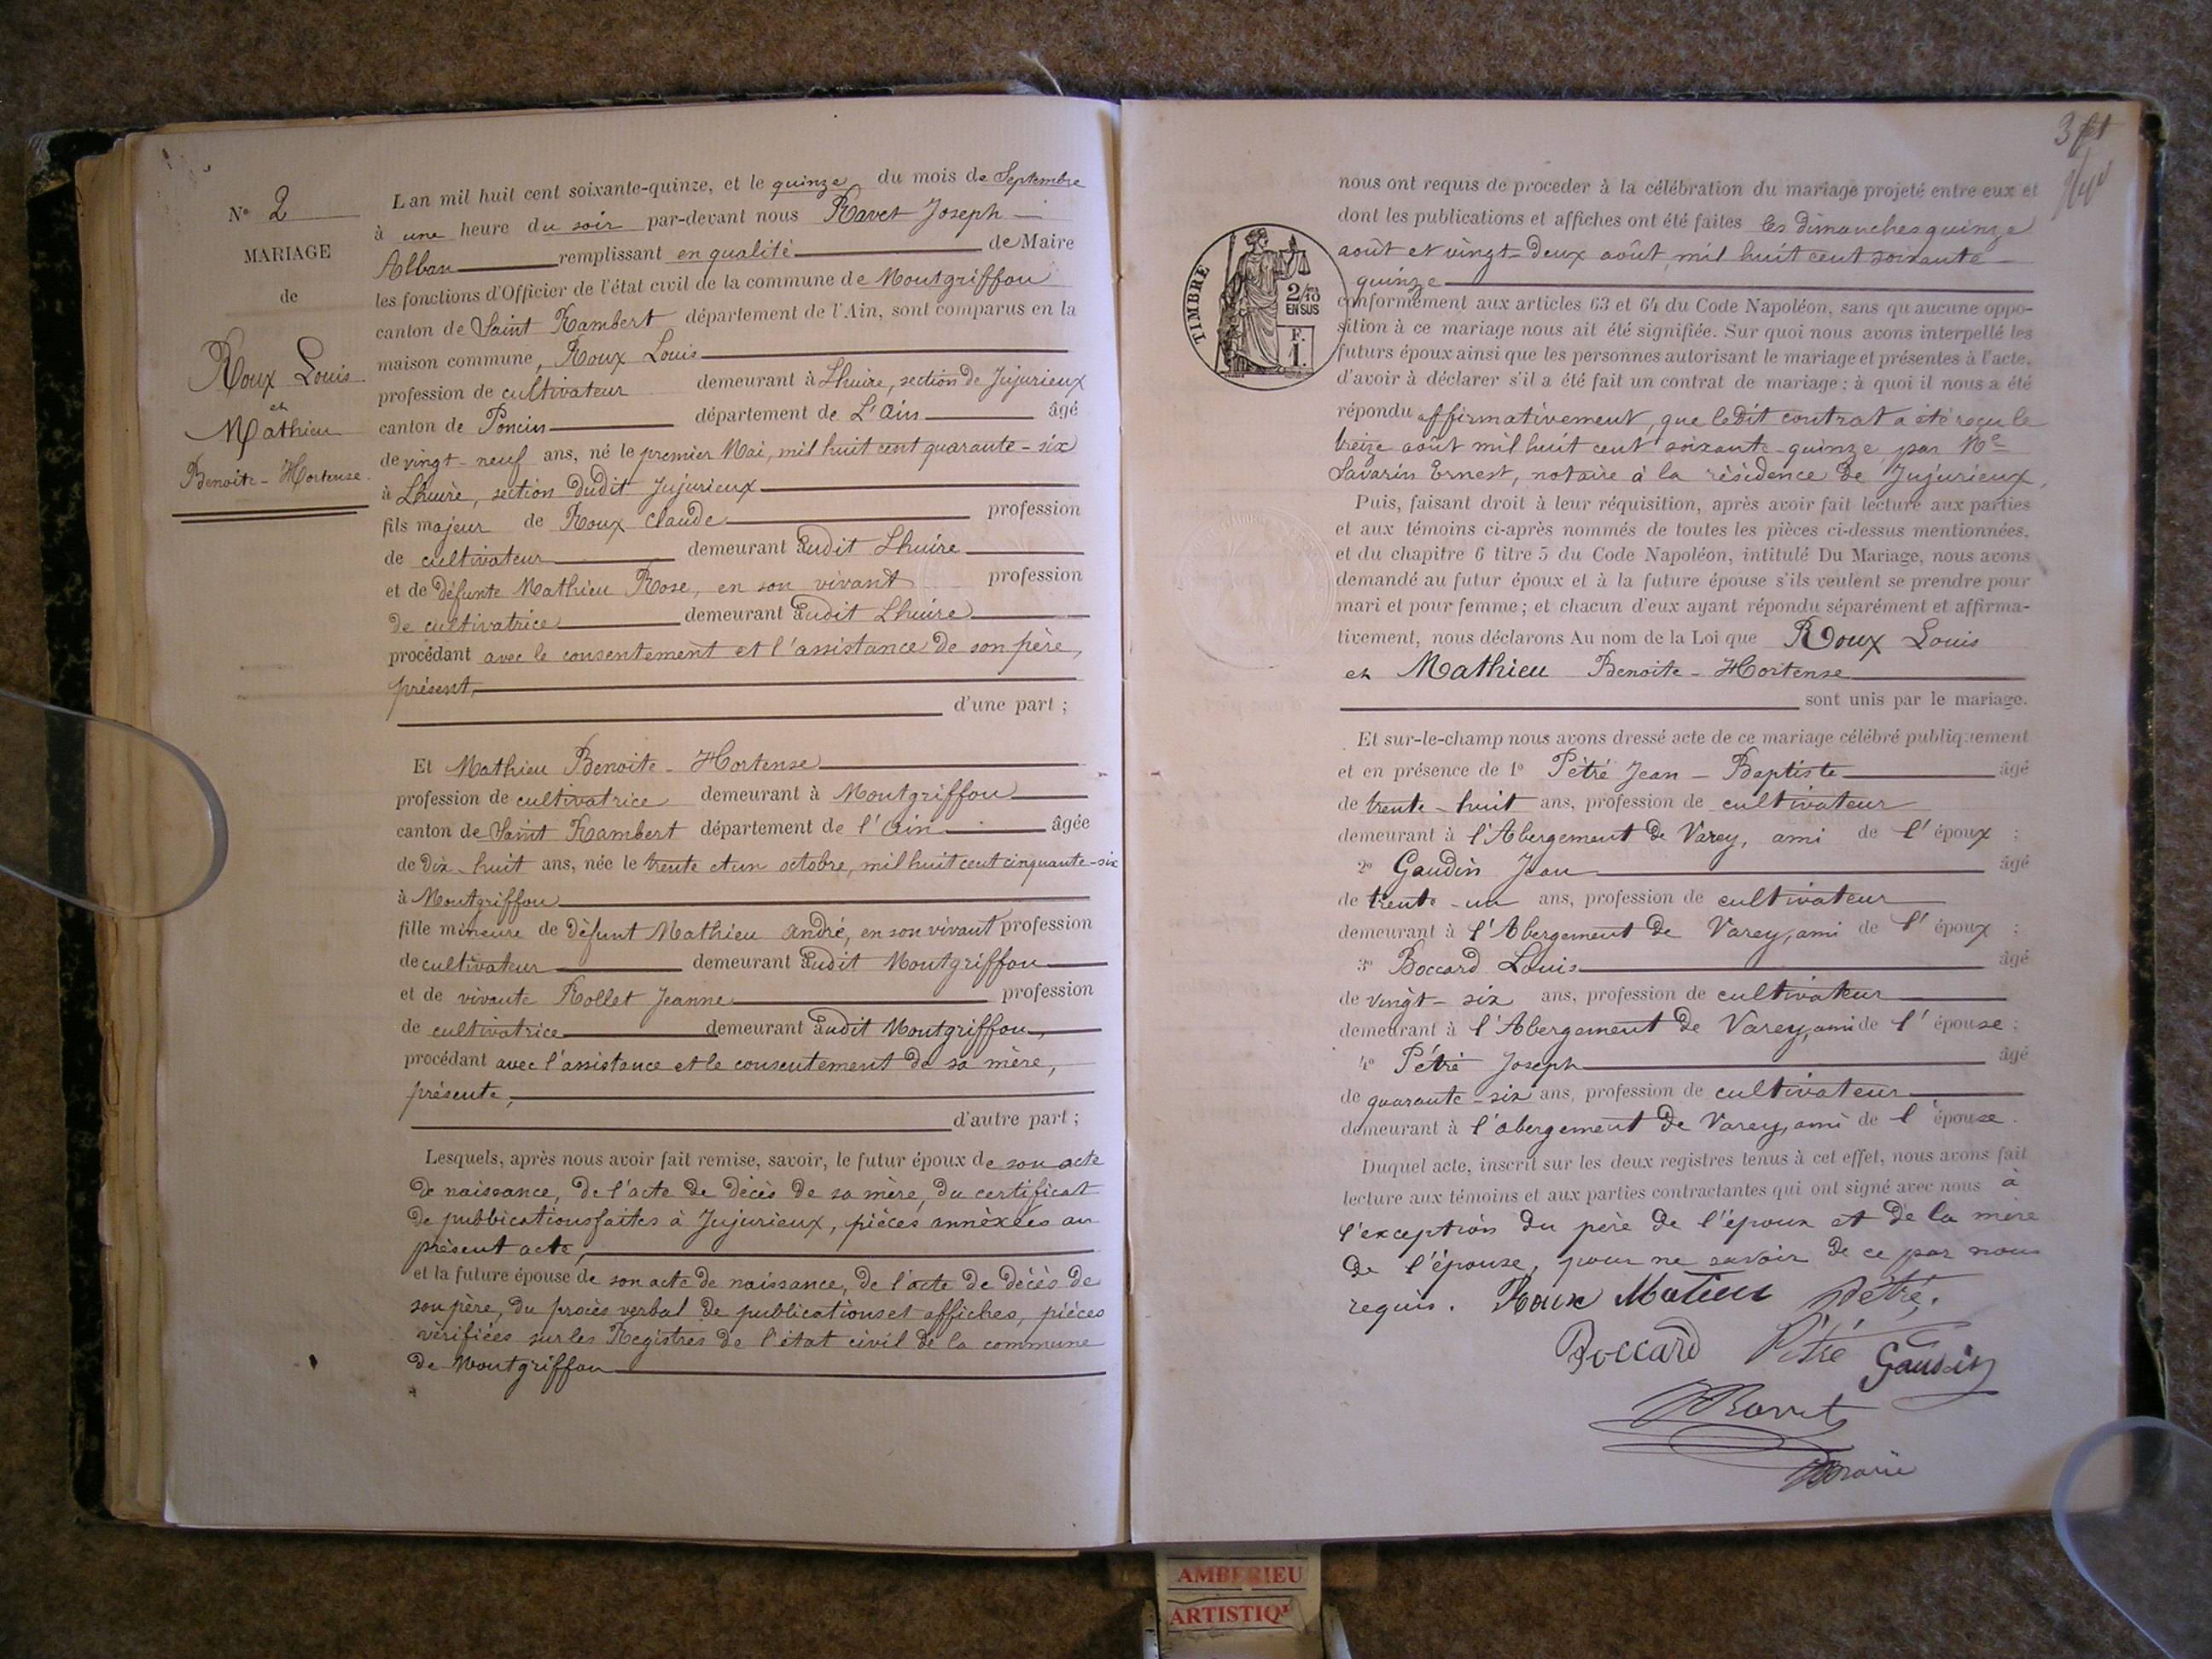 N° 2
MARIAGE
de
Roux Louis
et
Mathieu
Benoite - Hortense
L'an mil huit cent soixante-quinze, et le quinze du mois de Septembre
à une heure du soir par-devant nous Ravet Joseph
Alban remplissant en qualité de Maire
les fonctions d'Officier de l'état civil de la commune de Montgriffon
canton de Saint Rambert département de l'Ain, sont comparus en la
maison commune, Roux Louis
profession de cultivateur demeurant à Lhuire, section de Jujurieux
canton de Poncin département de L'Ain âgé
de vingt-neuf ans, né le premier Mai, mil huit cent quarante-six
à Lhuire, section dudit Jujurieux
fils majeur de Roux Claude profession
de cultivateur demeurant audit Lhuire
et de défunte Mathieu Rose, en son vivant profession
de cultivatrice demeurant audit Lhuire
procédant avec le consentement et l'assistance de son père,
présent,
d'une part ;
Et Mathieu Benoite - Hortense
profession de cultivatrice demeurant à Montgriffon
canton de Saint Rambert département de l'Ain âgée
de dix-huit ans, née le trente et un octobre, mil huit cent cinquante-six
à Montgriffon
fille mineure de défunt Mathieu André, en son vivant profession
de cultivateur demeurant audit Montgriffon
et de vivante Rollet Jeanne profession
de cultivatrice demeurant audit Montgriffon,
procédant avec l'assistance et le consentement de sa mère,
présente,
d'autre part ;
Lesquels, après nous avoir fait remise, savoir, le futur époux de son acte
de naissance, de l'acte de décès de sa mère, du certificat
de pubbications faites à Jujurieux, pièces annèxées au
présent acte,
et la future épouse de son acte de naissance, de l'acte de décès de
son père, du procès verbal de publications et affiches, pièces
vérifiées sur les Registres de l'état civil de la commune
de Montgriffon
nous ont requis de proceder à la célébration du mariage projeté entre eux et
dont les publications et affiches ont été faites les dimanches quinze
août et vingt-deux août, mil huit cent soixante
quinze
TIMBRE
2/10
EN SUS
F.
1.
conformément aux articles 63 et 64 du Code Napoléon, sans qu'aucune oppo-
sition à ce mariage nous ait été signifiée. Sur quoi nous avons interpellé les
futurs époux ainsi que les personnes autorisant le mariage et présentes à l'acte,
d'avoir à déclarer s'il a été fait un contrat de mariage : à quoi il nous a été
répondu affirmativement, que ledit contrat a été reçu le
treize août mil huit cent soixante-quinze par Me
Savarin Ernest, notaire à la résidence de Jujurieux,
Puis, faisant droit à leur réquisition, après avoir fait lecture aux parties
et aux témoins ci-après nommés de toutes les pièces ci-dessus mentionnées,
et du chapitre 6 titre 5 du Code Napoléon, intitulé Du Mariage, nous avons
demandé au futur époux et à la future épouse s'ils veulent se prendre pour
mari et pour femme ; et chacun d'eux ayant répondu séparément et affirma-
tivement, nous déclarons Au nom de la Loi que Roux Louis
et Mathieu Benoite - Hortense
sont unis par le mariage.
Et sur-le-champ nous avons dressé acte de ce mariage célébré publiquement
et en présence de 1° Pétré Jean - Baptiste âgé
de trente-huit ans, profession de cultivateur
demeurant à l'Abergement de Varey, ami de l'époux ;
2° Gaudin Jean âgé
de trente-un ans, profession de cultivateur
demeurant à l'Abergement de Varey, ami de l'époux ;
3° Boccard Louis âgé
de vingt-six ans, profession de cultivateur
demeurant à l'Abergement de Varey, ami de l'épouse ;
4° Pétré Joseph âgé
de quarante-six ans, profession de cultivateur
demeurant à l'abergement de Varey, ami de l'épouse.
Duquel acte, inscrit sur les deux registres tenus à cet effet, nous avons fait
lecture aux témoins et aux parties contractantes qui ont signé avec nous à
l'exception du père de l'époux et de la mère
de l'épouse, pour ne savoir de ce par nous
requis. Roux Matieu Pétré.
Boccard Pétré Gaudin
Ravet
AMBERIEU
ARTISTIQ